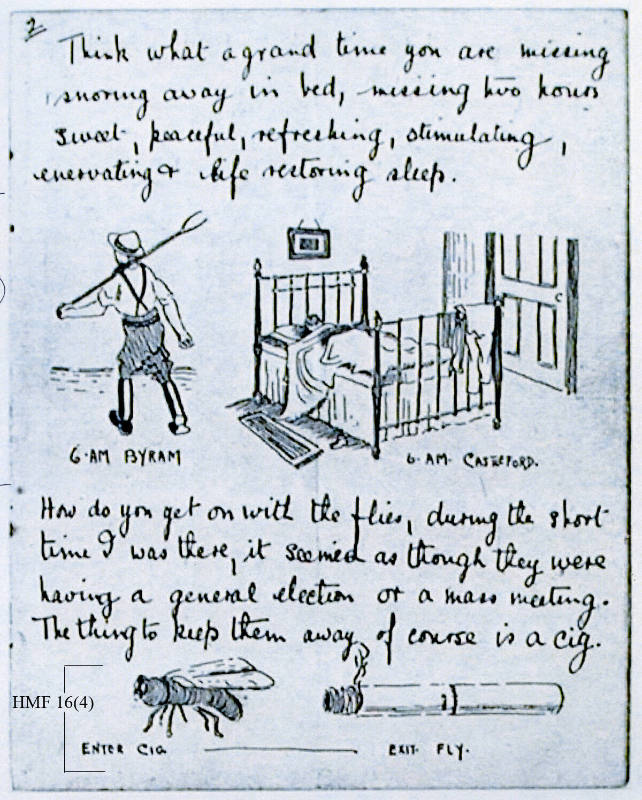 2.
Think what a grand time you are missing
snoring away in bed, missing two hours
sweet, peaceful, refreshing, stimulating,
enervating & life restoring sleep.
6·AM BYRAM
6·AM· CASTLEFORD.
How do you get on with the flies, during the short
time I was there, it seemed as though they were
having a general election or a mass meeting.
The thing to keep them away of course is a cig.
HMF 16(4)
ENTER CIG.
EXIT FLY.